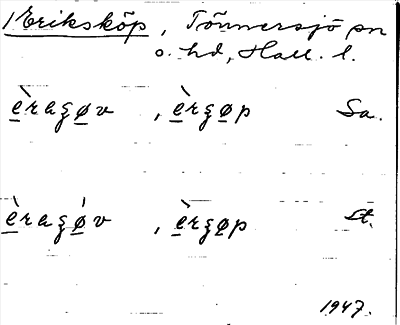 Eriksköp, Tönnersjö sn
o. hd, Hall. l.
èragøv, èrgøp Sa.
èragø̀v, èrgøp St.
1947.